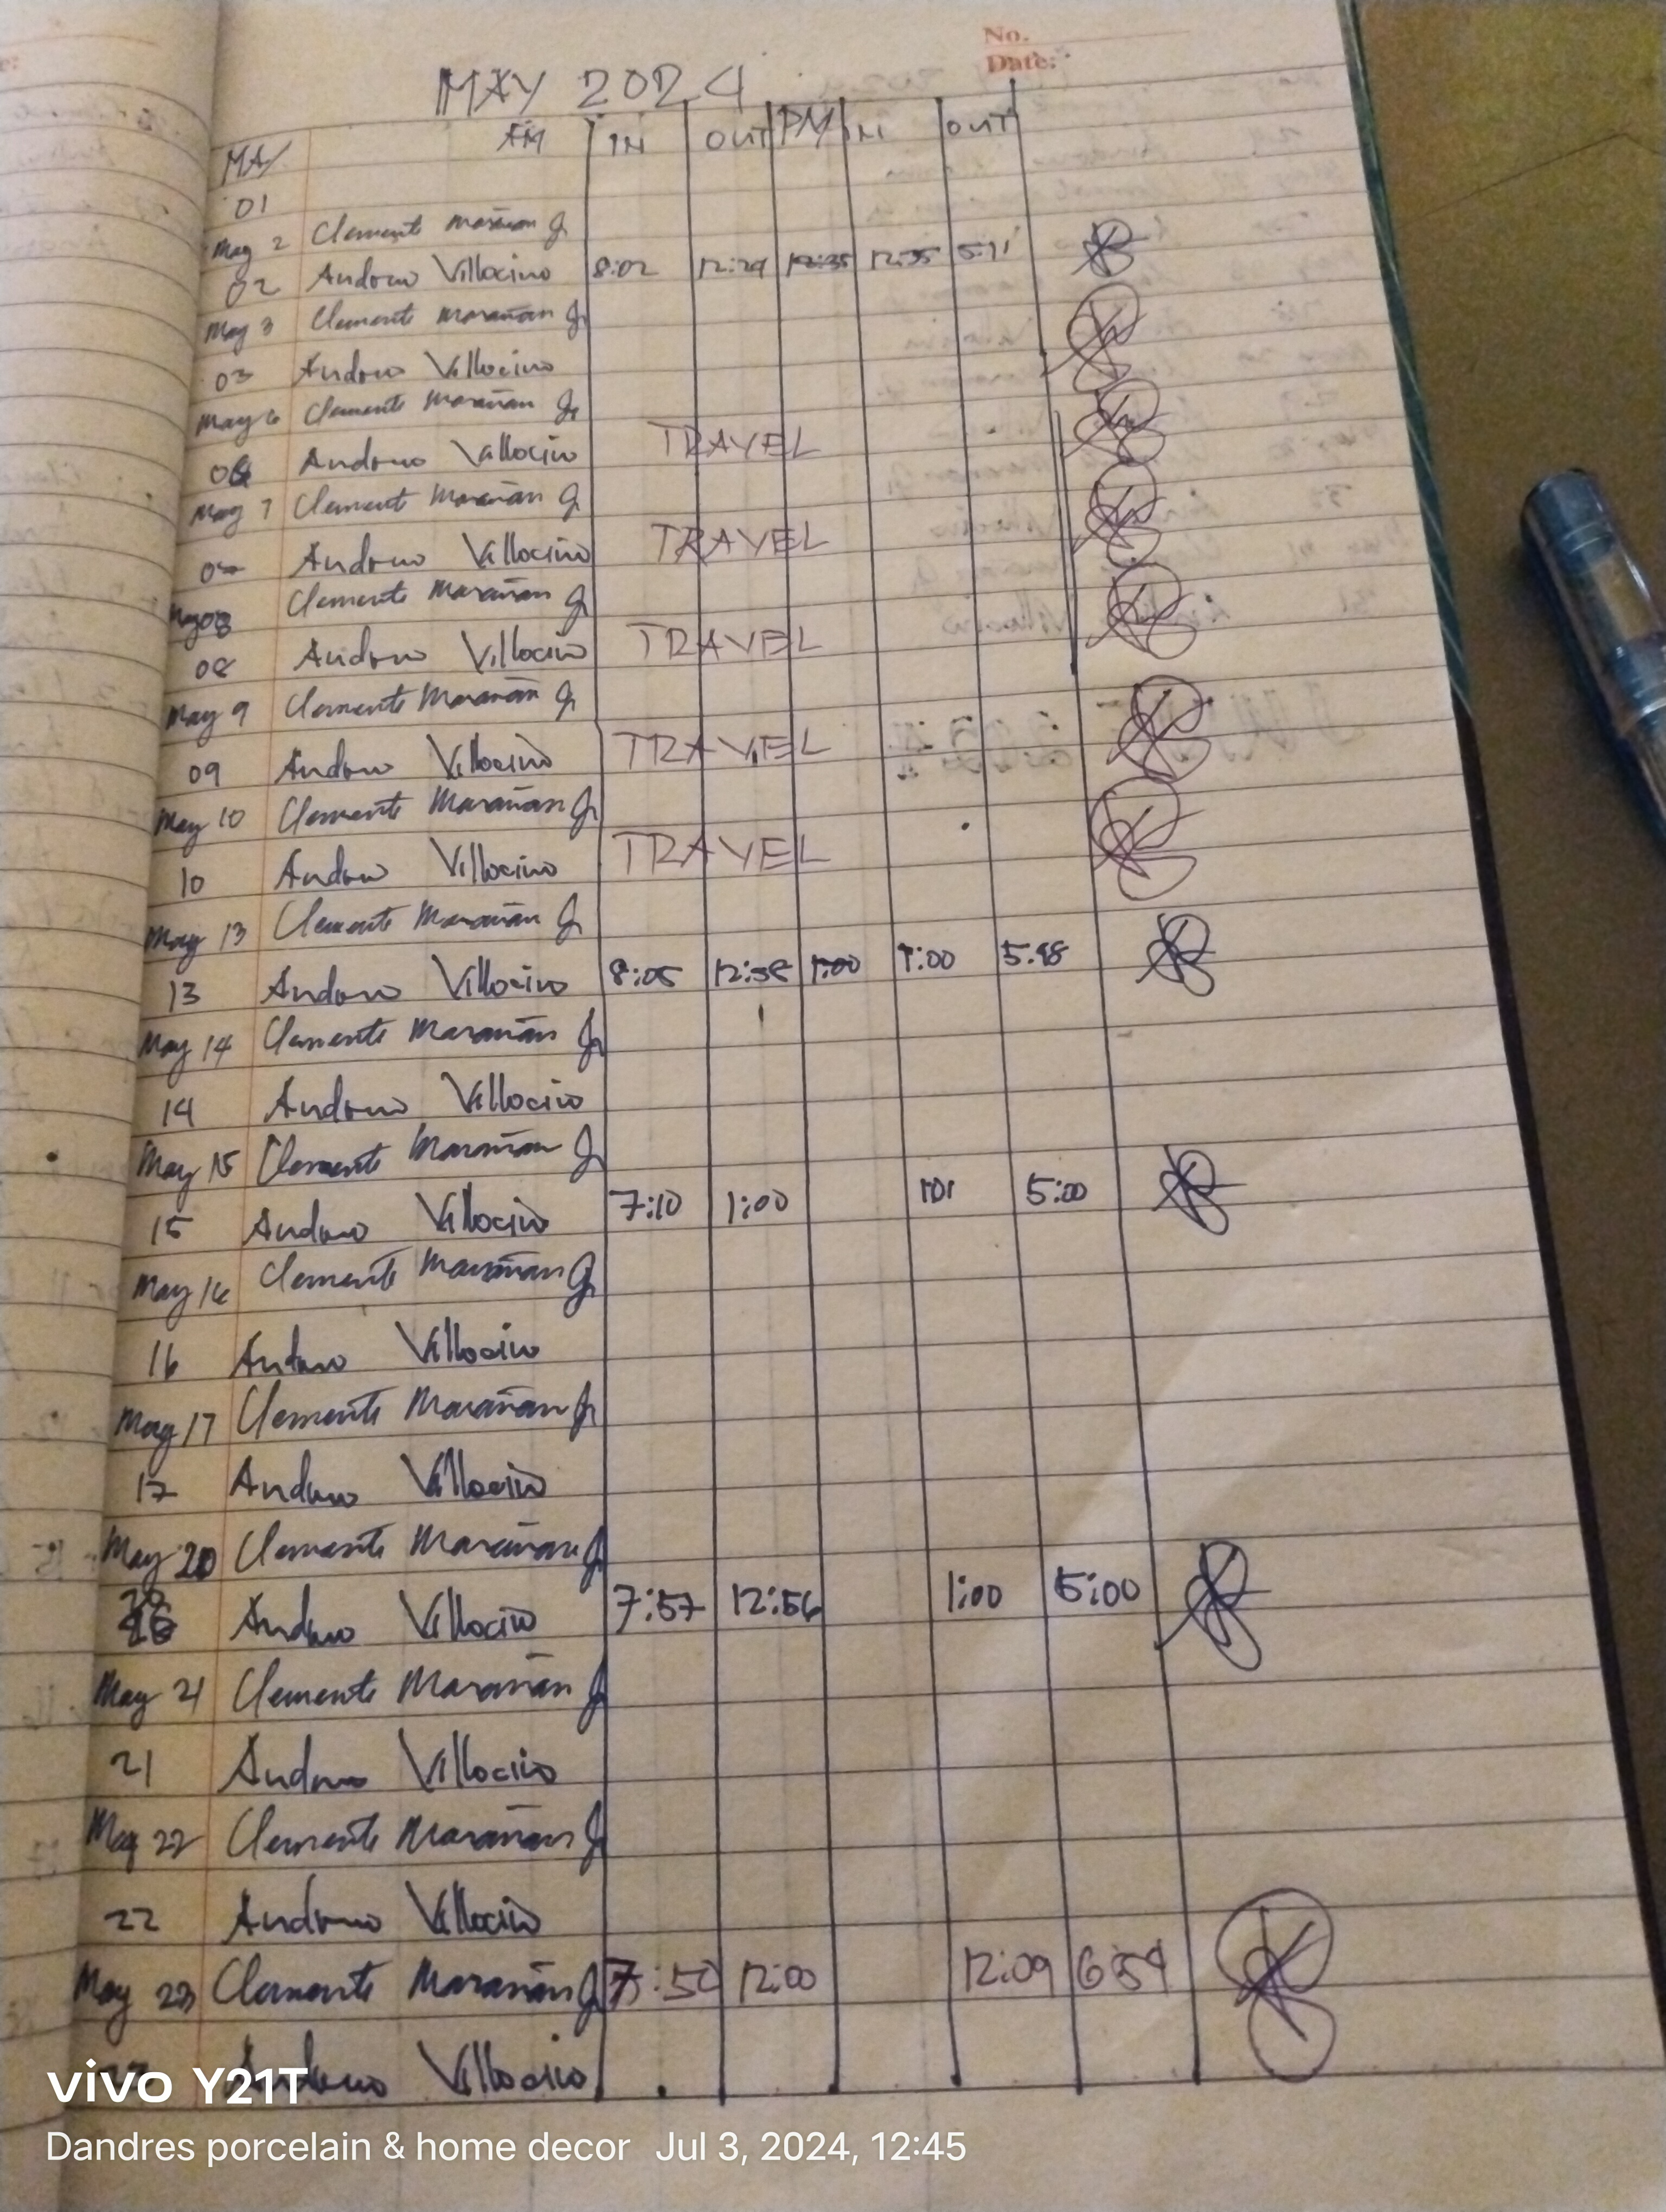 No.
Date:
MAY 2024
MAY AM IN OUT PM IN OUT
01
May 2 Clemente Marañan Jr
02 Andrew Villocino 8:02 12:29 12:35 12:35 5:11
May 3 Clemente Marañan Jr
03 Andrew Villocino
May 6 Clemente Marañan Jr
06 Andrew Villocino TRAVEL
May 7 Clemente Marañan Jr
07 Andrew Villocino TRAVEL
May 08 Clemente Marañan Jr
08 Andrew Villocino TRAVEL
May 9 Clemente Marañan Jr
09 Andrew Villocino TRAVEL
May 10 Clemente Marañan Jr
10 Andrew Villocino TRAVEL
May 13 Clemente Marañan Jr
13 Andrew Villocino 8:05 12:58 1:00 1:00
May 14 Clemente Marañan Jr
14 Andrew Villocino
May 15 Clemente Marañan Jr
15 Andrew Villocino 7:10 1:00 1:01 5:00
May 16 Clemente Marañan Jr
16 Andrew Villocino
May 17 Clemente Marañan Jr
17 Andrew Villocino
May 20 Clemente Marañan Jr
20 Andrew Villocino 7:57 12:56 1:00 5:00
May 21 Clemente Marañan Jr
21 Andrew Villocino
May 22 Clemente Marañan Jr
22 Andrew Villocino
May 23 Clemente Marañan Jr 7:50 12:00 12:09 6:59
Andrew Villocino
vivo Y21T
Dandres porcelain & home decor Jul 3, 2024, 12:45